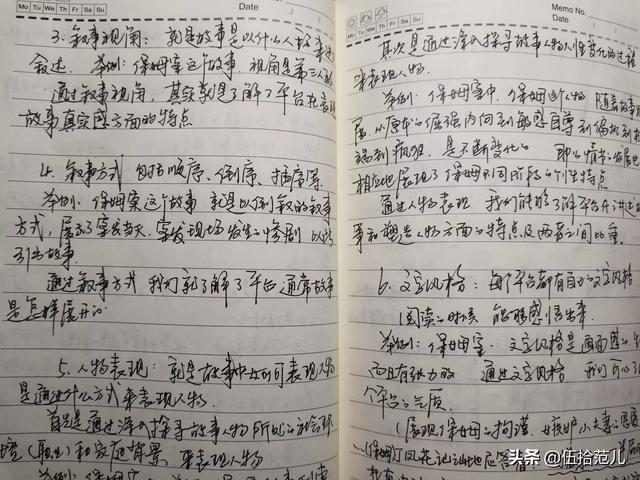 Mo Tu We Th Fr Sa Su
Date
3. 叙事视角：就是故事是以什么人称来进
叙述. 举例：保姆案这个故事. 视角是第三人称
通过叙事视角，其实就是了解了平台在表现
故事真实感方面的特点
4. 叙事方式 包括顺序、倒序、插序等.
举例：保姆案这个故事 就是以倒叙的叙事
方式，展示了案发当天，案发现场发生的惨剧 以此
引出故事.
通过叙事方式 我们就了解了平台通常故事
是怎样展开的
5. 人物表现：就是故事中如何表现人物
是通过什么方式来表现人物.
首先是通过深入探寻故事人物所处的社会环
境（职业）和家庭背景，来表现人物
Memo No.
Mo Tu We Th Fr Sa Su
Date
其次是通过深入探寻故事人物人性变化的过程
来表现人物.
举例：保姆案中，保姆这个人物 随着故事发
展，从原本的倔强内向到敏感自尊到偏执到
到疯狂，是不断变化的. 那么情节的发展也
相应地展现了保姆不同阶段的个性特点
通过人物表现 我们能够了解平台在讲述故
事和塑造人物方面的特点及两者之间比重.
6. 文字风格：每个平台都有自己的文字风格
阅读的时候 能够感悟出来.
举例：保姆案. 文字风格是画面感
而且有张力的 通过文字风格 我们可以
个平台的气质.
（展现保姆的拘谨.
头条 @伍拾范儿